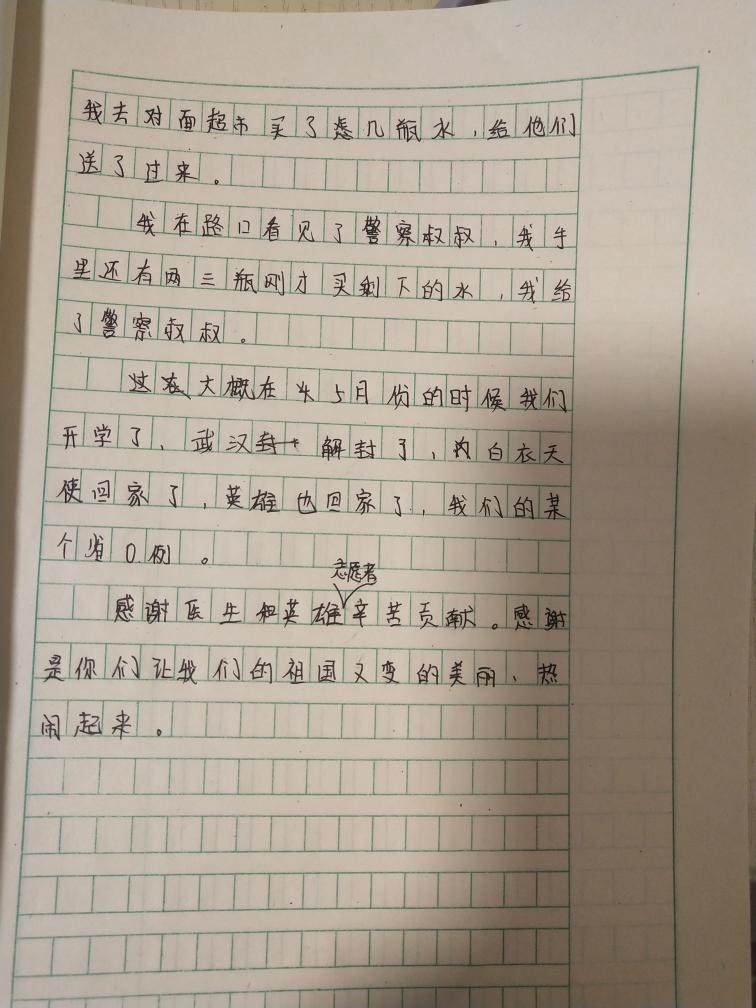 我去对面超市买了几瓶水，给他们
送了过来。
我在路口看见了警察叔叔，我手
里还有两三瓶刚才买剩下的水，我给
了警察叔叔。
大概在4 5月份的时候我们
开学了、武汉解封了，白衣天
使回家了，英雄也回家了，我们的某
个省0例。
志愿者
感谢医生和英雄辛苦贡献。感谢
是你们让我们的祖国又变的美丽、热
闹起来。